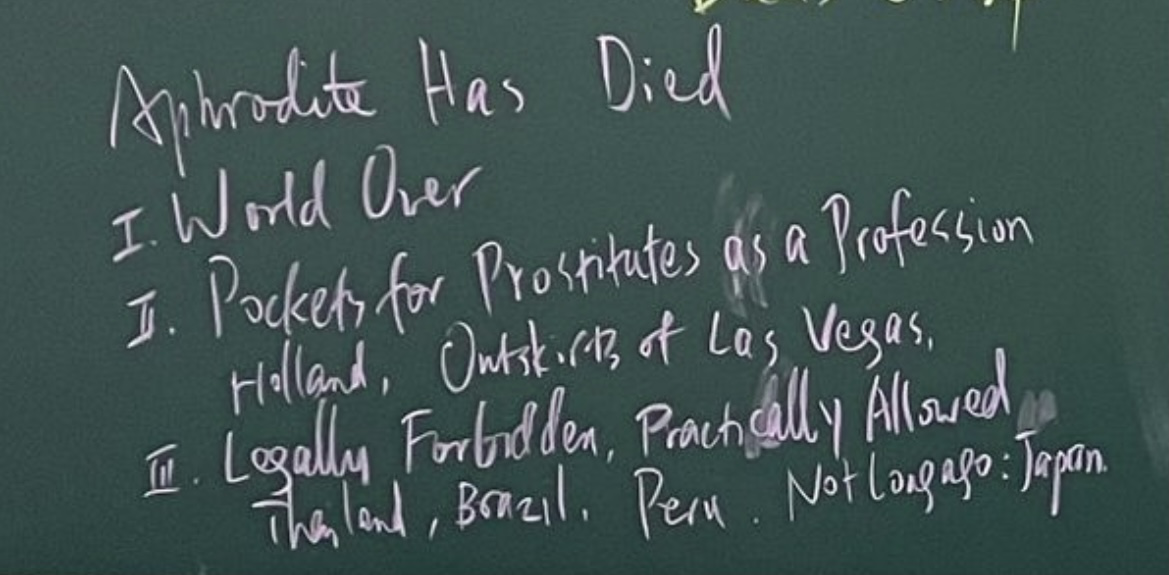 Aphrodite Has Died
I. World Over
II. Pockets for Prostitutes as a Profession
Holland, Outskirts of Las Vegas,
III. Legally Forbidden, Practically Allowed
Thailand, Brazil, Peru. Not Long ago: Japan.